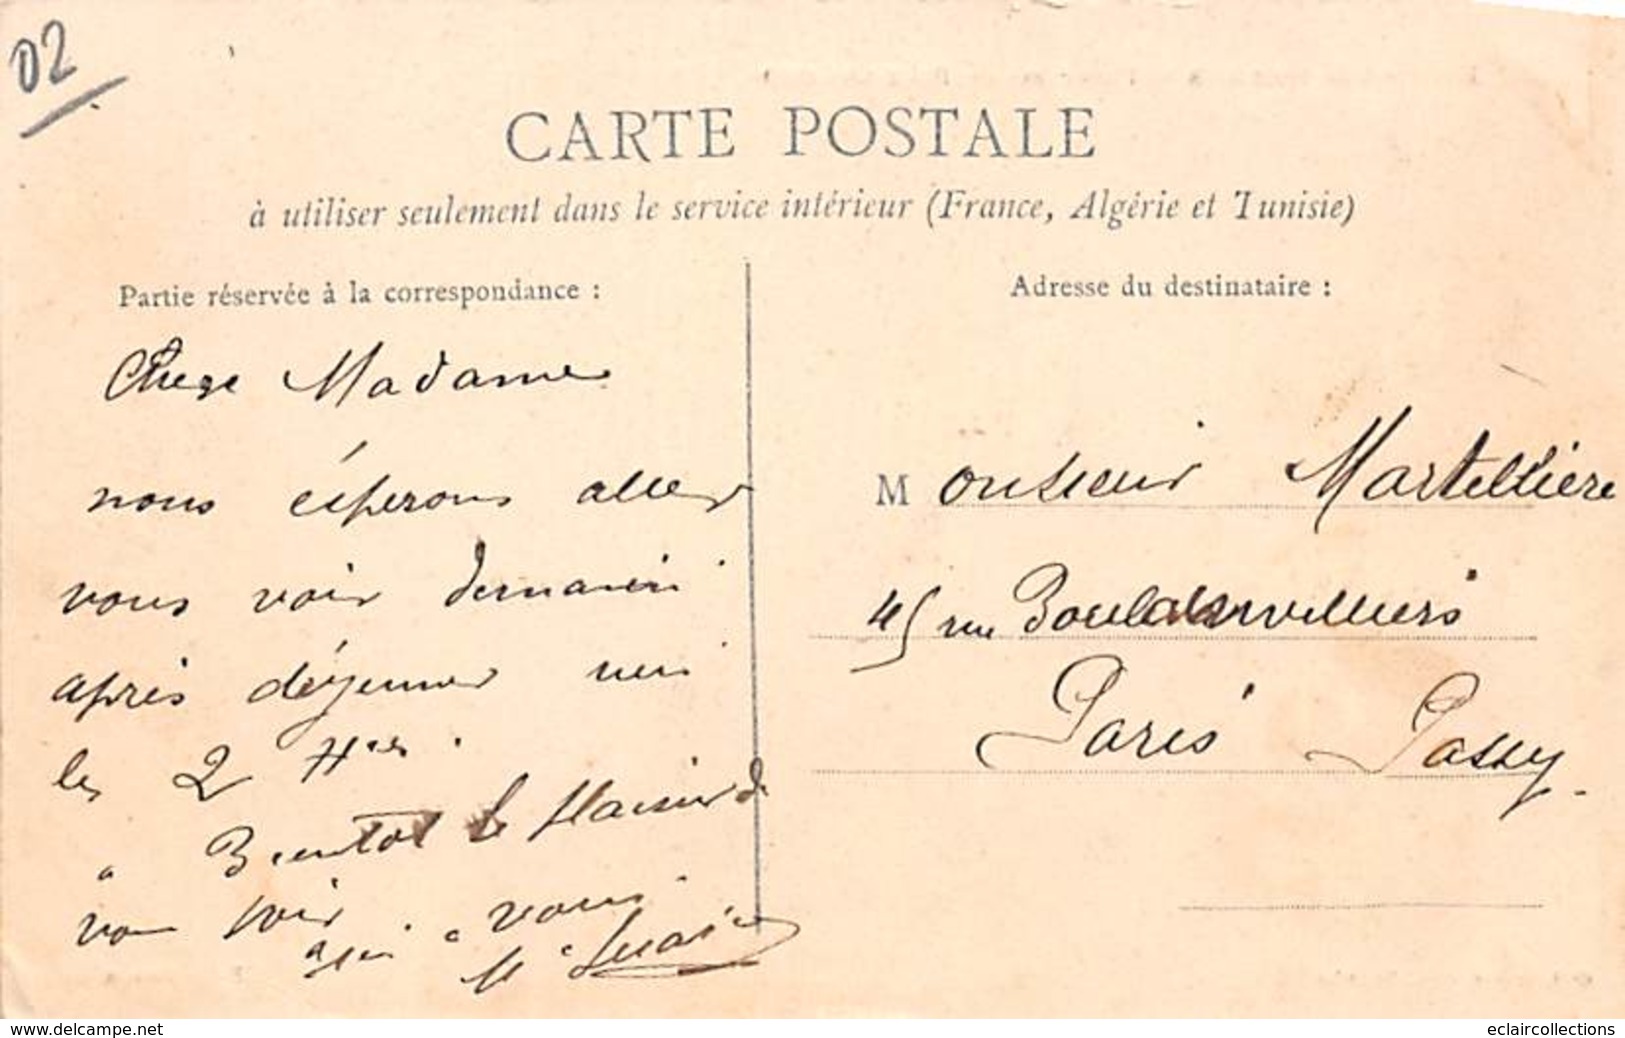 02
CARTE POSTALE
à utiliser seulement dans le service intérieur (France, Algérie et Tunisie)
Partie réservée à la correspondance :
Adresse du destinataire :
Chere Madame
nous ésperons aller
vous voir demain
après déjeuner vers
les 2 Hres
a Bientot le plaisir de
vous voir
a vous
Monsieur Martellière
45 rue Boulainvilliers
Paris Passy
www.delcampe.net
eclaircollections